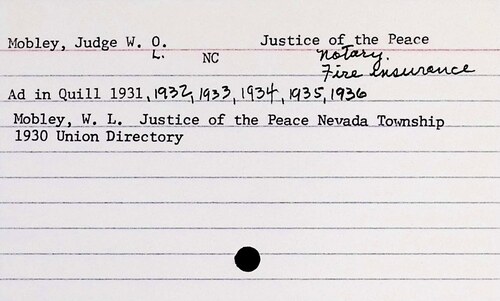 Mobley, Judge W. O. Justice of the Peace
L. NC Notary.
Fire Insurance
Ad in Quill 1931, 1932, 1933, 1934, 1935, 1936
Mobley, W. L. Justice of the Peace Nevada Township
1930 Union Directory